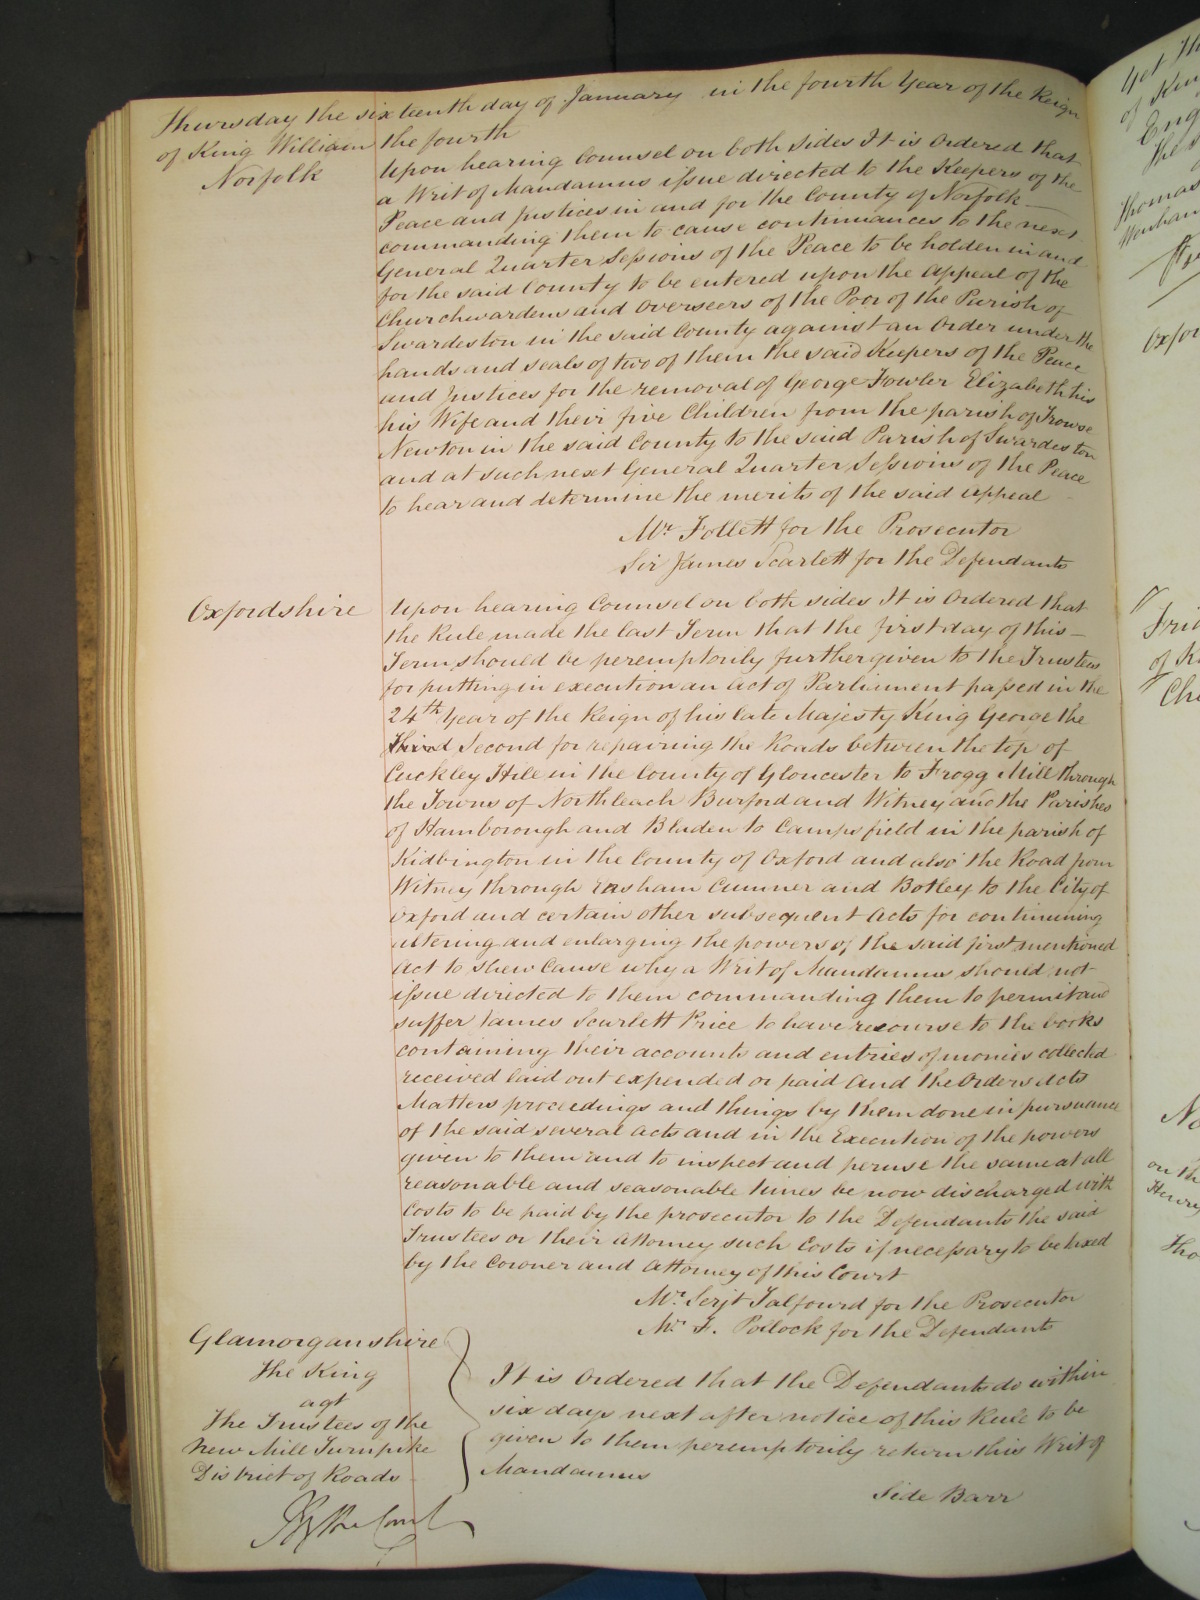 Thursday the sixteenth day of January in the fourth Year of the Reign
of King William the fourth
Norfolk
Upon hearing Counsel on both sides It is Ordered that
a Writ of Mandamus issue directed to the Keepers of the
Peace and Justices in and for the County of Norfolk
commanding them to cause continuances to the next
General Quarter Sessions of the Peace to be holden in and
for the said County to be entered upon the appeal of the
Churchwardens and Overseers of the Poor of the Parish of
Swardeston in the said County against an Order under the
hands and seals of two of them the said Keepers of the Peace
and Justices for the removal of George Fowler Elizabeth his
his Wife and their five Children from the parish of Trowse
Newton in the said County to the said Parish of Swardeston
and at such next General Quarter Sessions of the Peace
to hear and determine the merits of the said appeal
Mr. Follett for the Prosecutor
Sir James Scarlett for the Defendants
Oxfordshire
Upon hearing Counsel on both sides It is Ordered that
the Rule made the last Term that the first day of this
Term should be peremptorily further given to the Trustees
for putting in execution an Act of Parliament passed in the
24th Year of the Reign of his late Majesty King George the
Third Second for repairing the Roads between the top of
Cuckley Hill in the County of Gloucester to Frogg Mill through
the Towns of Northleach Burford and Witney and the Parishes
of Hamborough and Bladen to Campsfield in the parish of
Kidbington in the County of Oxford and also the Road from
Witney through Ensham Cumner and Botley to the City of
Oxford and certain other subsequent Acts for continuing
altering and enlarging the powers of the said first mentioned
Act to shew Cause why a Writ of Mandamus should not
issue directed to them commanding them to permit and
suffer James Scarlett Price to have recourse to the books
containing their accounts and entries of monies collected
received laid out expended or paid and the Orders Acts
Matters proceedings and things by them done in pursuance
of the said several acts and in the Execution of the powers
given to them and to inspect and peruse the same at all
reasonable and seasonable times be now discharged with
Costs to be paid by the prosecutor to the Defendants the said
Trustees or their Attorney such Costs if necessary to be taxed
by the Coroner and Attorney of this Court
Mr. Serjt Talfourd for the Prosecutor
Mr. F. Pollock for the Defendants
Glamorganshire
The King
agt
The Trustees of the
New Mill Turnpike
District of Roads
It is Ordered that the Defendants do within
six days next after notice of this Rule to be
given to them peremptorily return this Writ of
Mandamus
Side Barr
By the Court